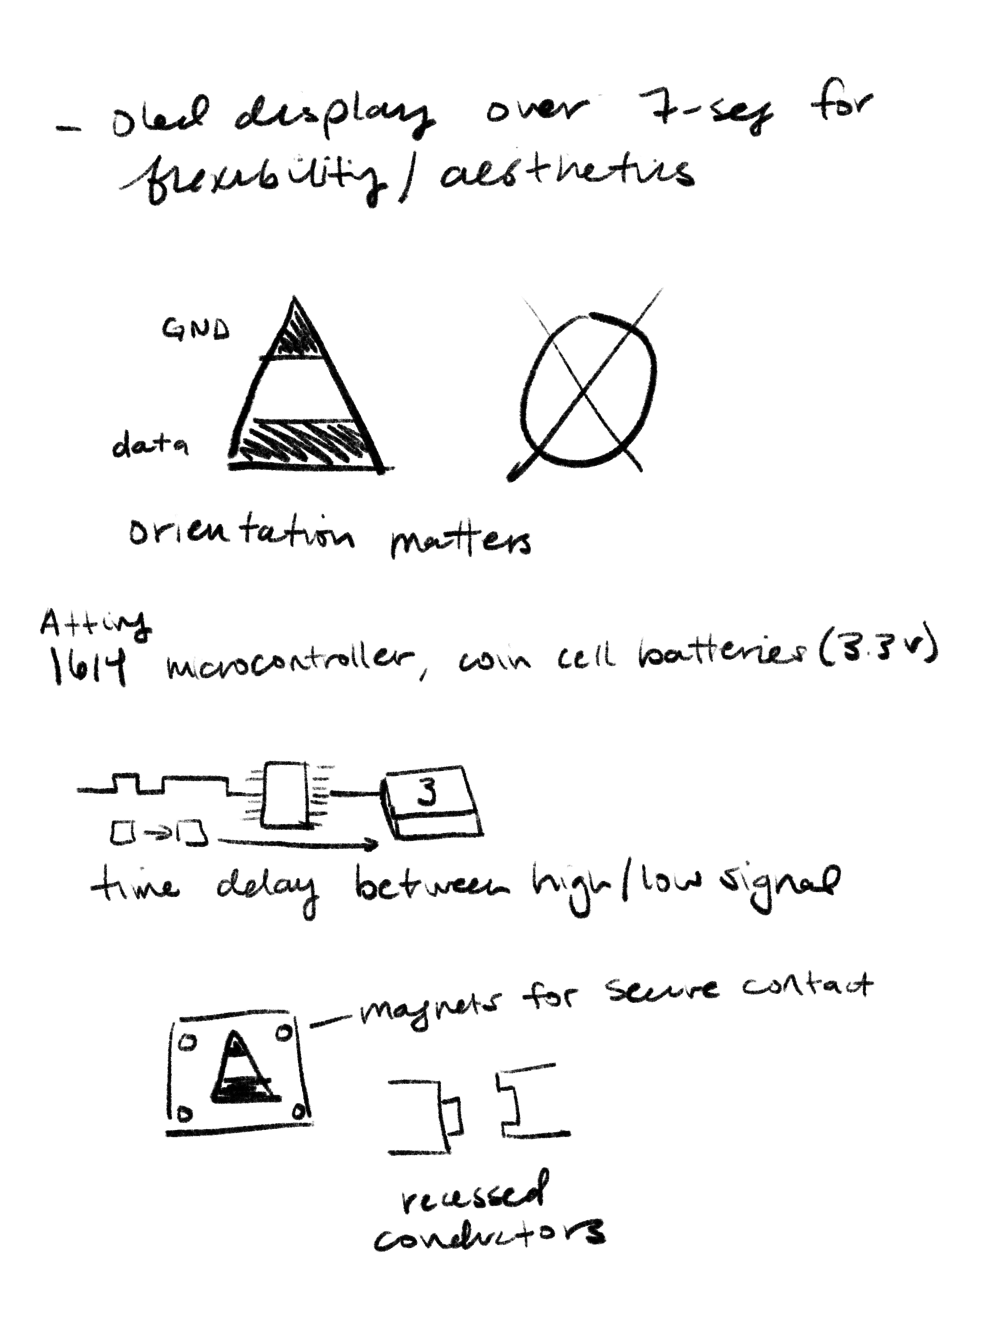 - Oled display over 7-seg for
flexibility/aesthetics
GND
data
orientation matters
Attiny
1614 microcontroller, coin cell batteries (3.3v)
3
time delay between high/low signal
magnets for secure contact
recessed
conductors